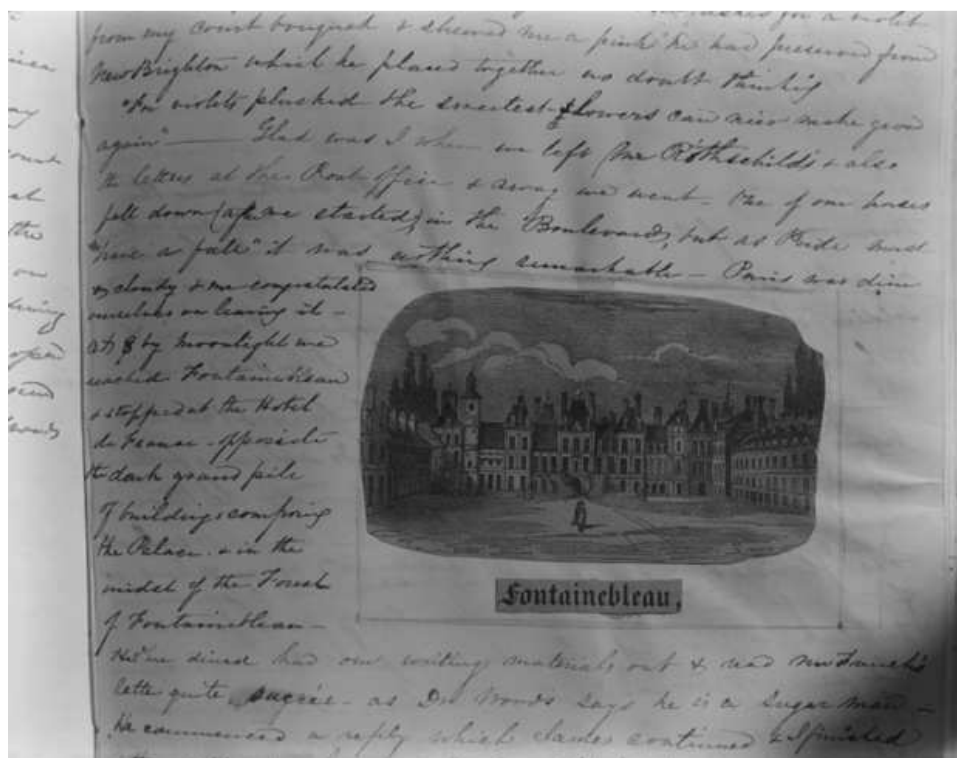 for a violet
from my court bouquet & shewed me a pink he had preserved from
New Brighton which he placed together no doubt thinking
"For violets plucked the sweetest flowers can neer make grow
again" — Glad was I when we left Mr Rothschilds & also
the letters at the Post office & away we went - One of our horses
fell down (after we started) in the Boulevards, but as Pride must
"have a fall" it was nothing remarkable - Paris was dim
& cloudy & we congratulated
ourselves on leaving it -
at 8 by moonlight we
reached Fontainebleau
& stopped at the Hotel
de France - opposite
the dark grand pile
of buildings composing
the Palace & in the
midst of the Forest
of Fontainebleau -
Fontainebleau,
we dined had our writing materials out & read
letter quite sucrée - as Dr Woods says he is a Sugar Man -
He commenced a reply which James continued & I finished
the
on